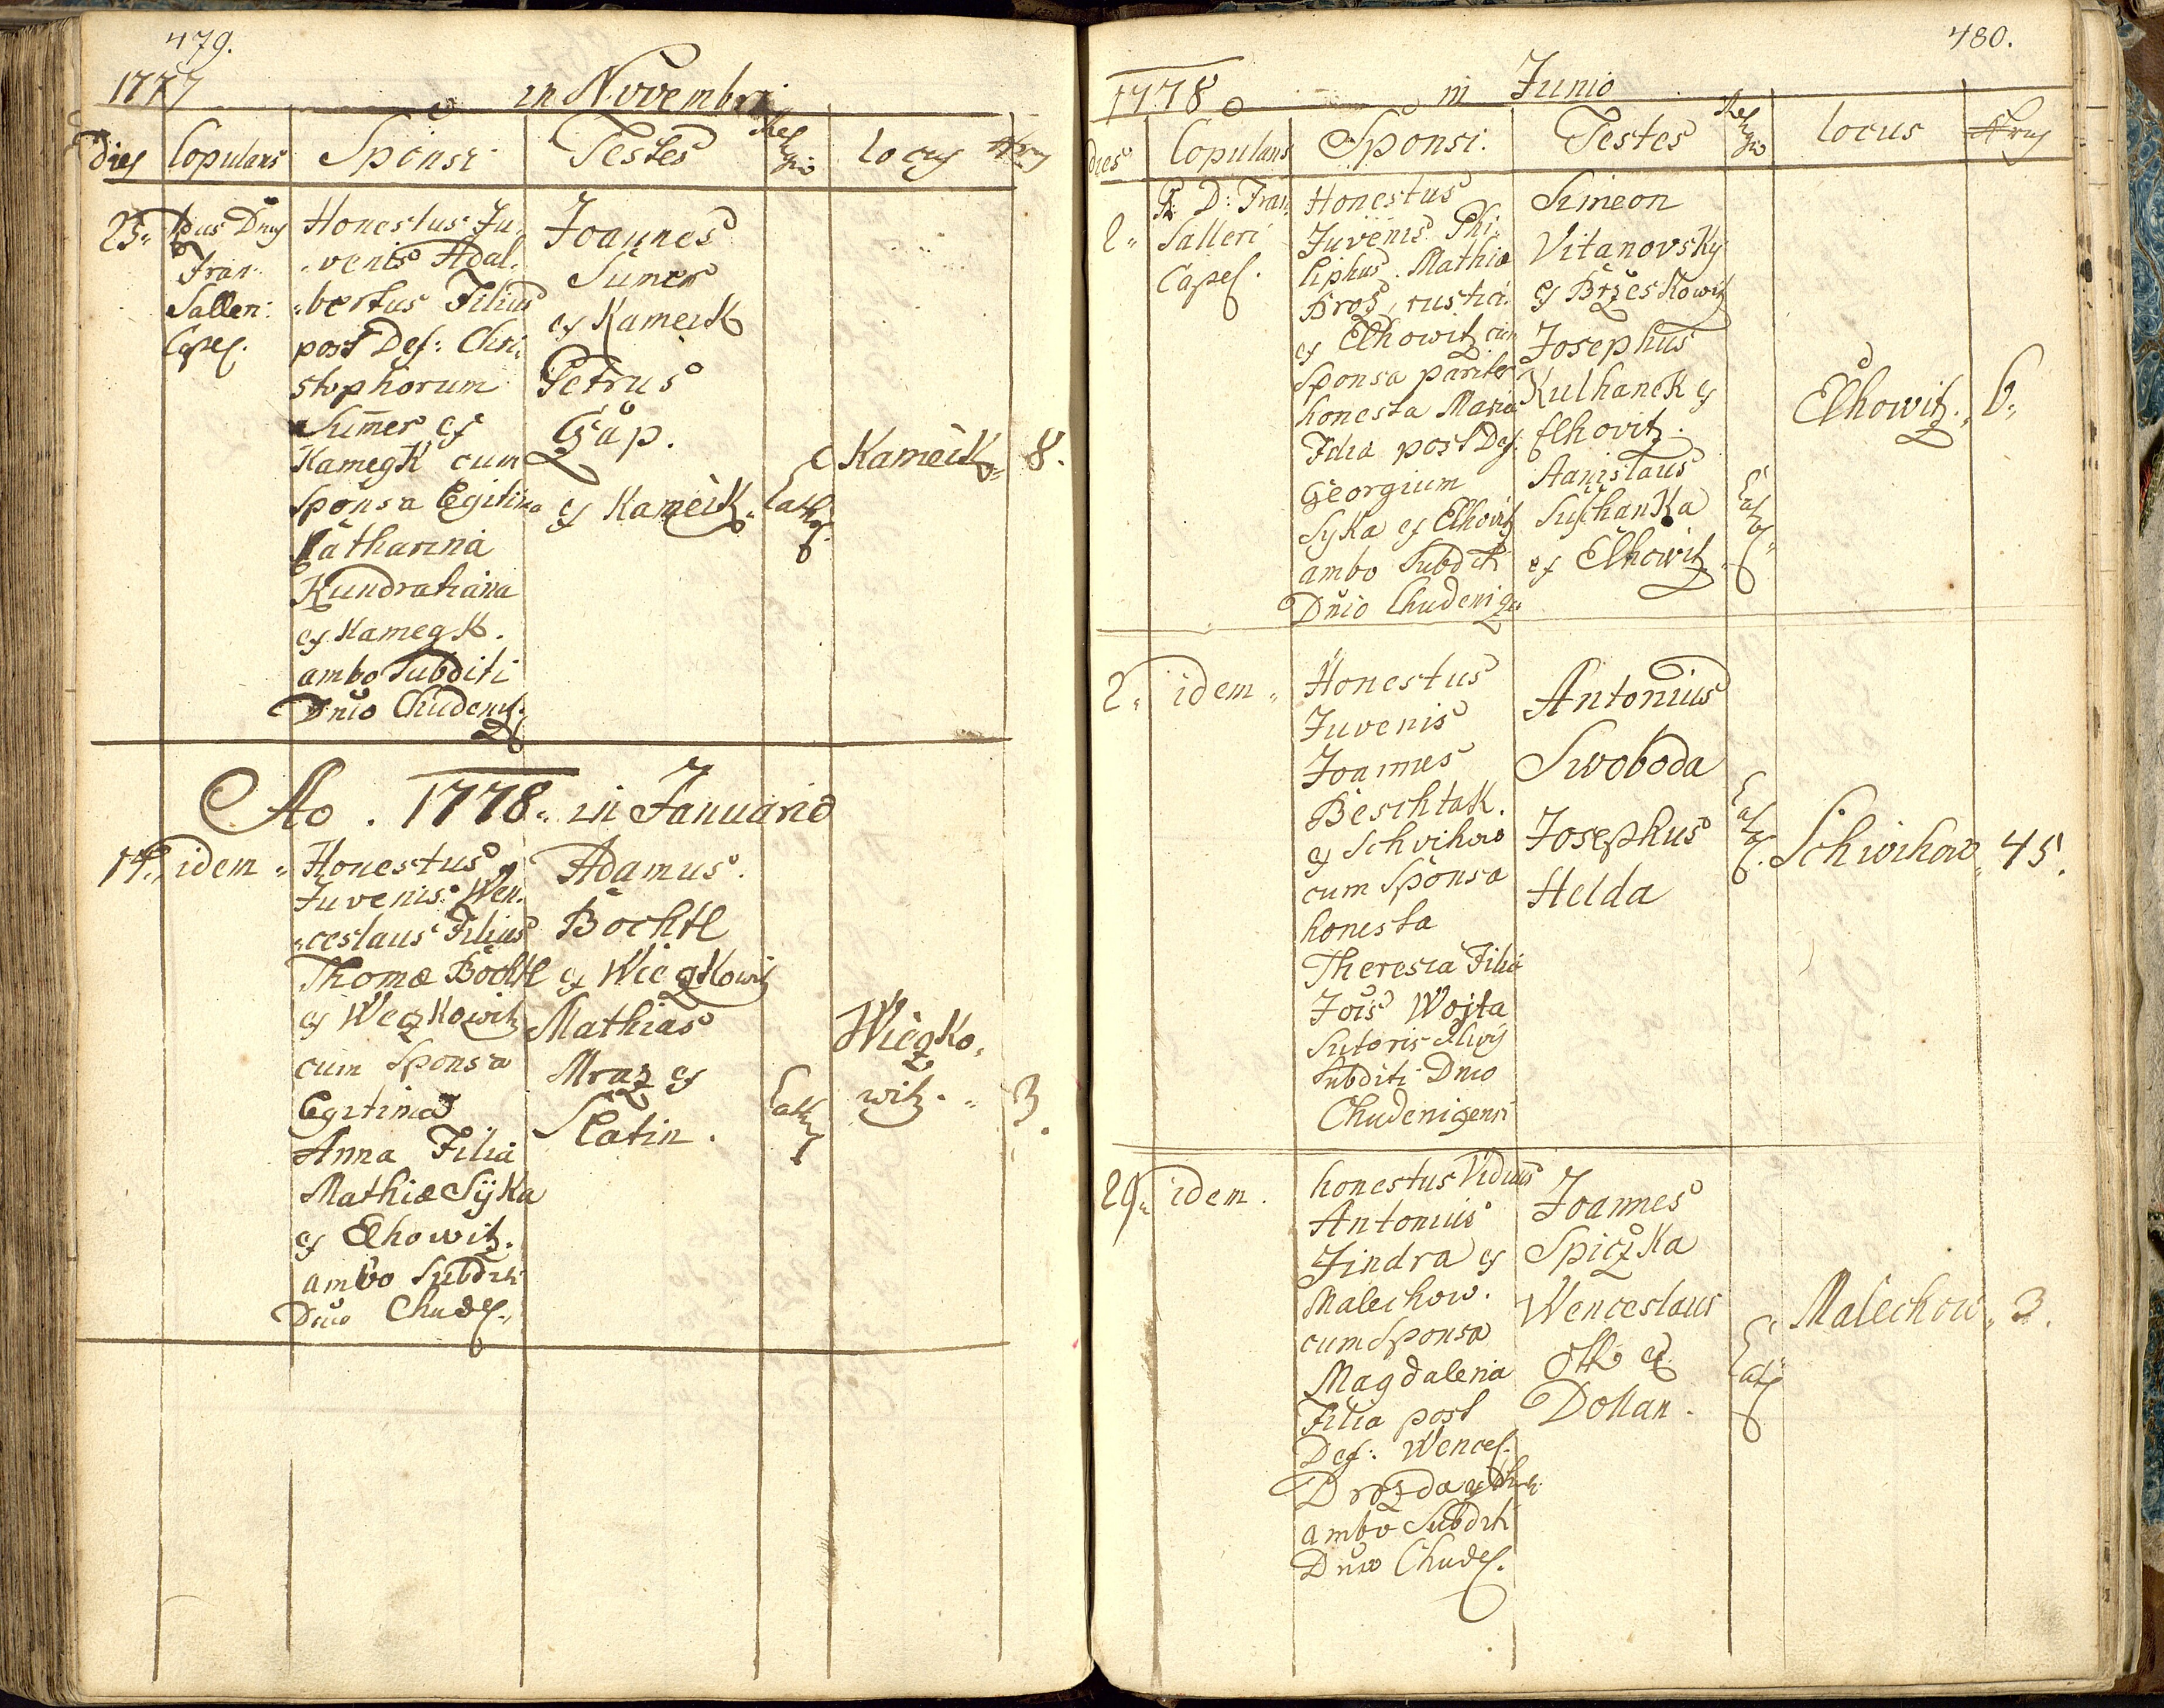 479.
1777
in Novembri
dies Copulans Sponsi Testes Religio locus Nrus
25. Dnus
Fran:
Salleri
Capel.
Honestus Ju-
venis Adal-
bertus Filius
post Def: Chri-
stophorum
Sumer ex
Kamegk cum
Sponsa legitima
Catharina
Kundratiana
ex Kamegk.
ambo Subditi
Dnio Chudeniz.
Joannes
Sumer
ex Kameik
Petrus
Gap.
ex Kameik.
Cath.
Kameik 8.
Ao. 1778. in Januario
14. idem
Honestus
Juvenis Wen-
ceslaus Filius
Thomæ Bochtl
ex Weczkowitz
cum Sponsa
legitima
Anna Filia
Mathiæ Syka
ex Elhowitz.
ambo Subditi
Dnio Chudes.
Adamus
Bochtl
ex Wieczkowitz
Mathias
Mraz ex
Slatin.
Cath
Wieczko-
witz. 3.
480.
1778 in Junio
dies Copulans Sponsi. Testes Religio locus Nrus
2. D: Fran:
Salleri
Capel.
Honestus
Juvenis Phi-
liphus Mathiæ
Broz, rustici
ex Elhowitz cum
Sponsa pariter
honesta Maria
Filia post Def:
Georgium
Syka ex Elhovitz
ambo Subditi
Dnio Chudenizen
Simeon
Vitanovsky
ex Brzeskowitz
Josephus
Kulhanek ex
Elhovitz.
Stanislaus
Suchanka
ex Elhowitz
Cath.
Elhowitz. 6.
2. idem
Honestus
Juvenis
Joannes
Beschtak.
ex Schvihow
cum Sponsa
honesta
Theresia Filia
Jois Wojta
Sutoris
Subditi Dnio
Chudenizensi
Antonius
Swoboda
Josephus
Helda
Cath.
Schwihow 45.
29. idem.
honestus Viduus
Antonius
Jindra ex
Malechow.
cum Sponsa
Magdalena
Filia post
Def: Wencesl.
Drozda
ambo Subditi
Dnio Chudes.
Joannes
Spiczka
Wenceslaus
Ott ex
Dollan.
Cath.
Malechow 3.